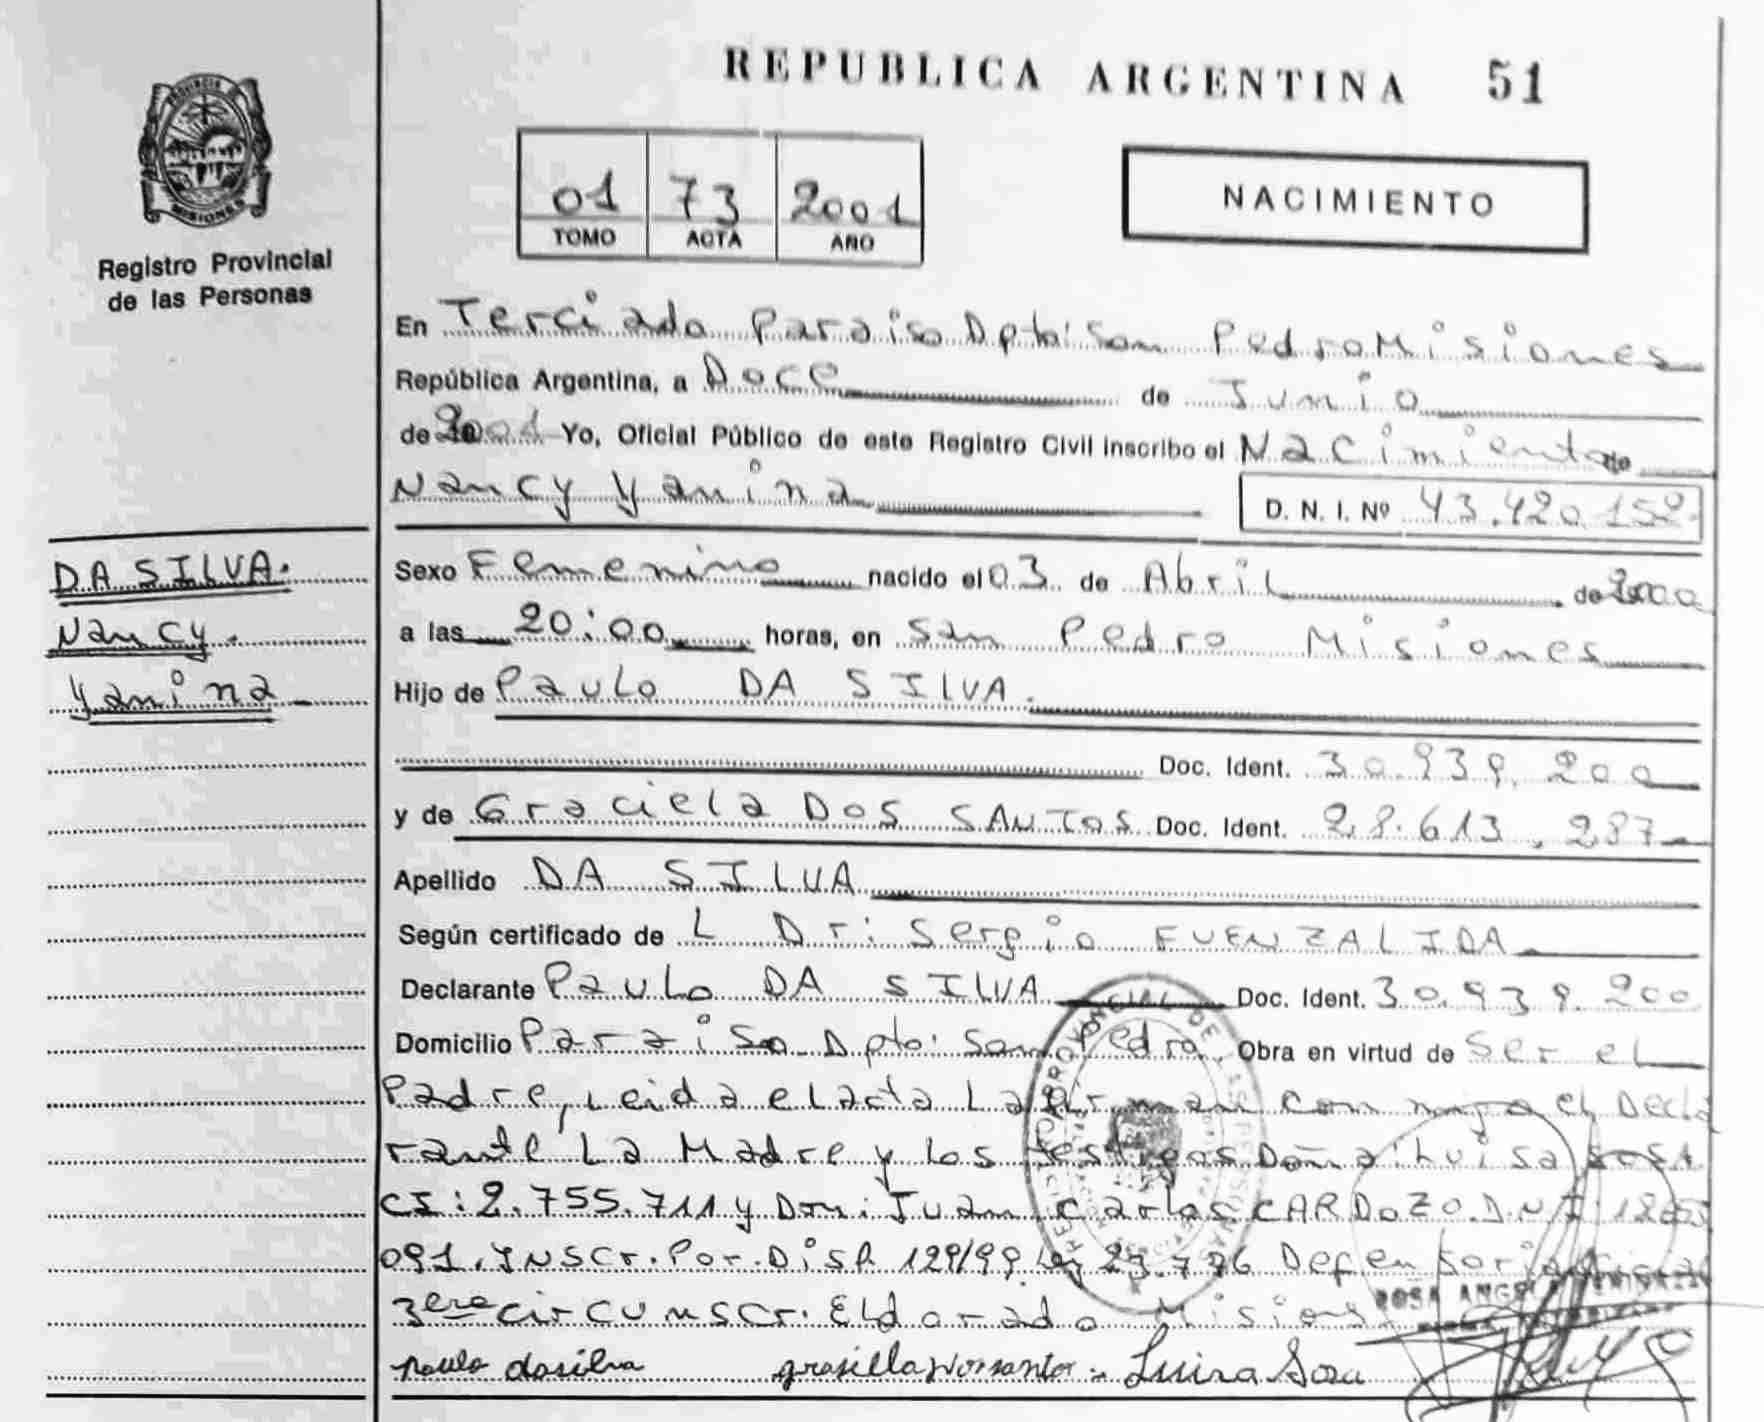 REPUBLICA ARGENTINA 51
PROVINCIA DE
MISIONES
Registro Provincial
de las Personas
01 73 2001
TOMO ACTA AÑO
NACIMIENTO
En Terciado Paraiso Dpto: San Pedro Misiones
República Argentina, a Doce de Junio
de 2001 Yo, Oficial Público de este Registro Civil inscribo el Nacimiento de
Nancy Yanina
D. N. I. Nº 43.420.152
DA SILVA.
Nancy.
Yanina
Sexo Femenino nacido el 03 de Abril de 2000
a las 20:00 horas, en San Pedro Misiones
Hijo de Paulo DA SILVA.
Doc. Ident. 30.939.200
y de Graciela DOS SANTOS Doc. Ident. 28.613.287
Apellido DA SILVA
Según certificado de L Dr: Sergio FUENZALIDA
Declarante Paulo DA SILVA Doc. Ident. 30.939.200
Domicilio Paraiso Dpto: San Pedro, Obra en virtud de Ser el
Padre, Leida el acta La firman con migo el Decla
rante La Madre y Los testigos Doña: Luisa SOSA
CI: 2.755.711 y Don: Juan Carlos CARDOZO. D.N.I:
091. INSCr. Por. Disp. 129/99 Ley 23.776 Defensoria
3era circunscr. Eldorado Misiones
ROSA
paulo dasilva grasiella Luisa Sosa